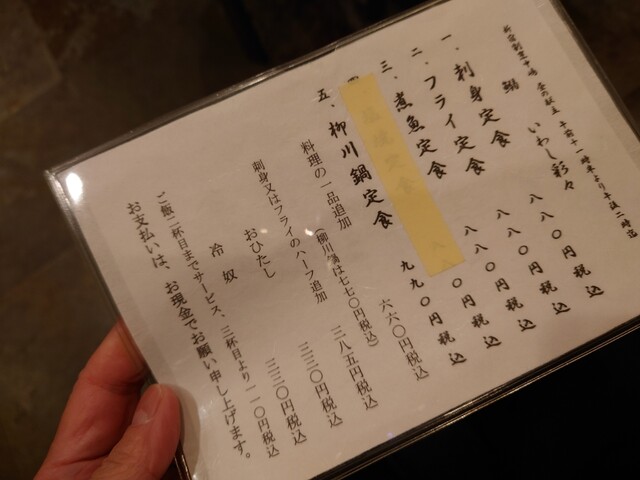 新宿割烹中嶋 昼の献立 午前十一時半より午後二時迄
鰯 いわし彩々
一、刺身定食 八八〇円税込
二、フライ定食 八八〇円税込
三、煮魚定食 八八〇円税込
五、柳川鍋定食 九九〇円税込
料理の一品追加 六六〇円税込
(柳川鍋は七七〇円税込)
刺身又はフライのハーフ追加 三八五円税込
おひたし 二二〇円税込
冷奴 二二〇円税込
ご飯二杯目までサービス、三杯目より一一〇円税込
お支払いは、お現金でお願い申し上げます。